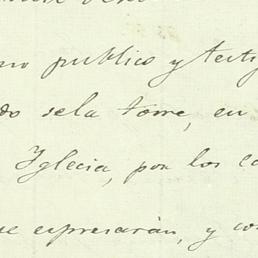 publico y testi
do sela torre, en
Iglecia, por los ca
se expresarán, y con